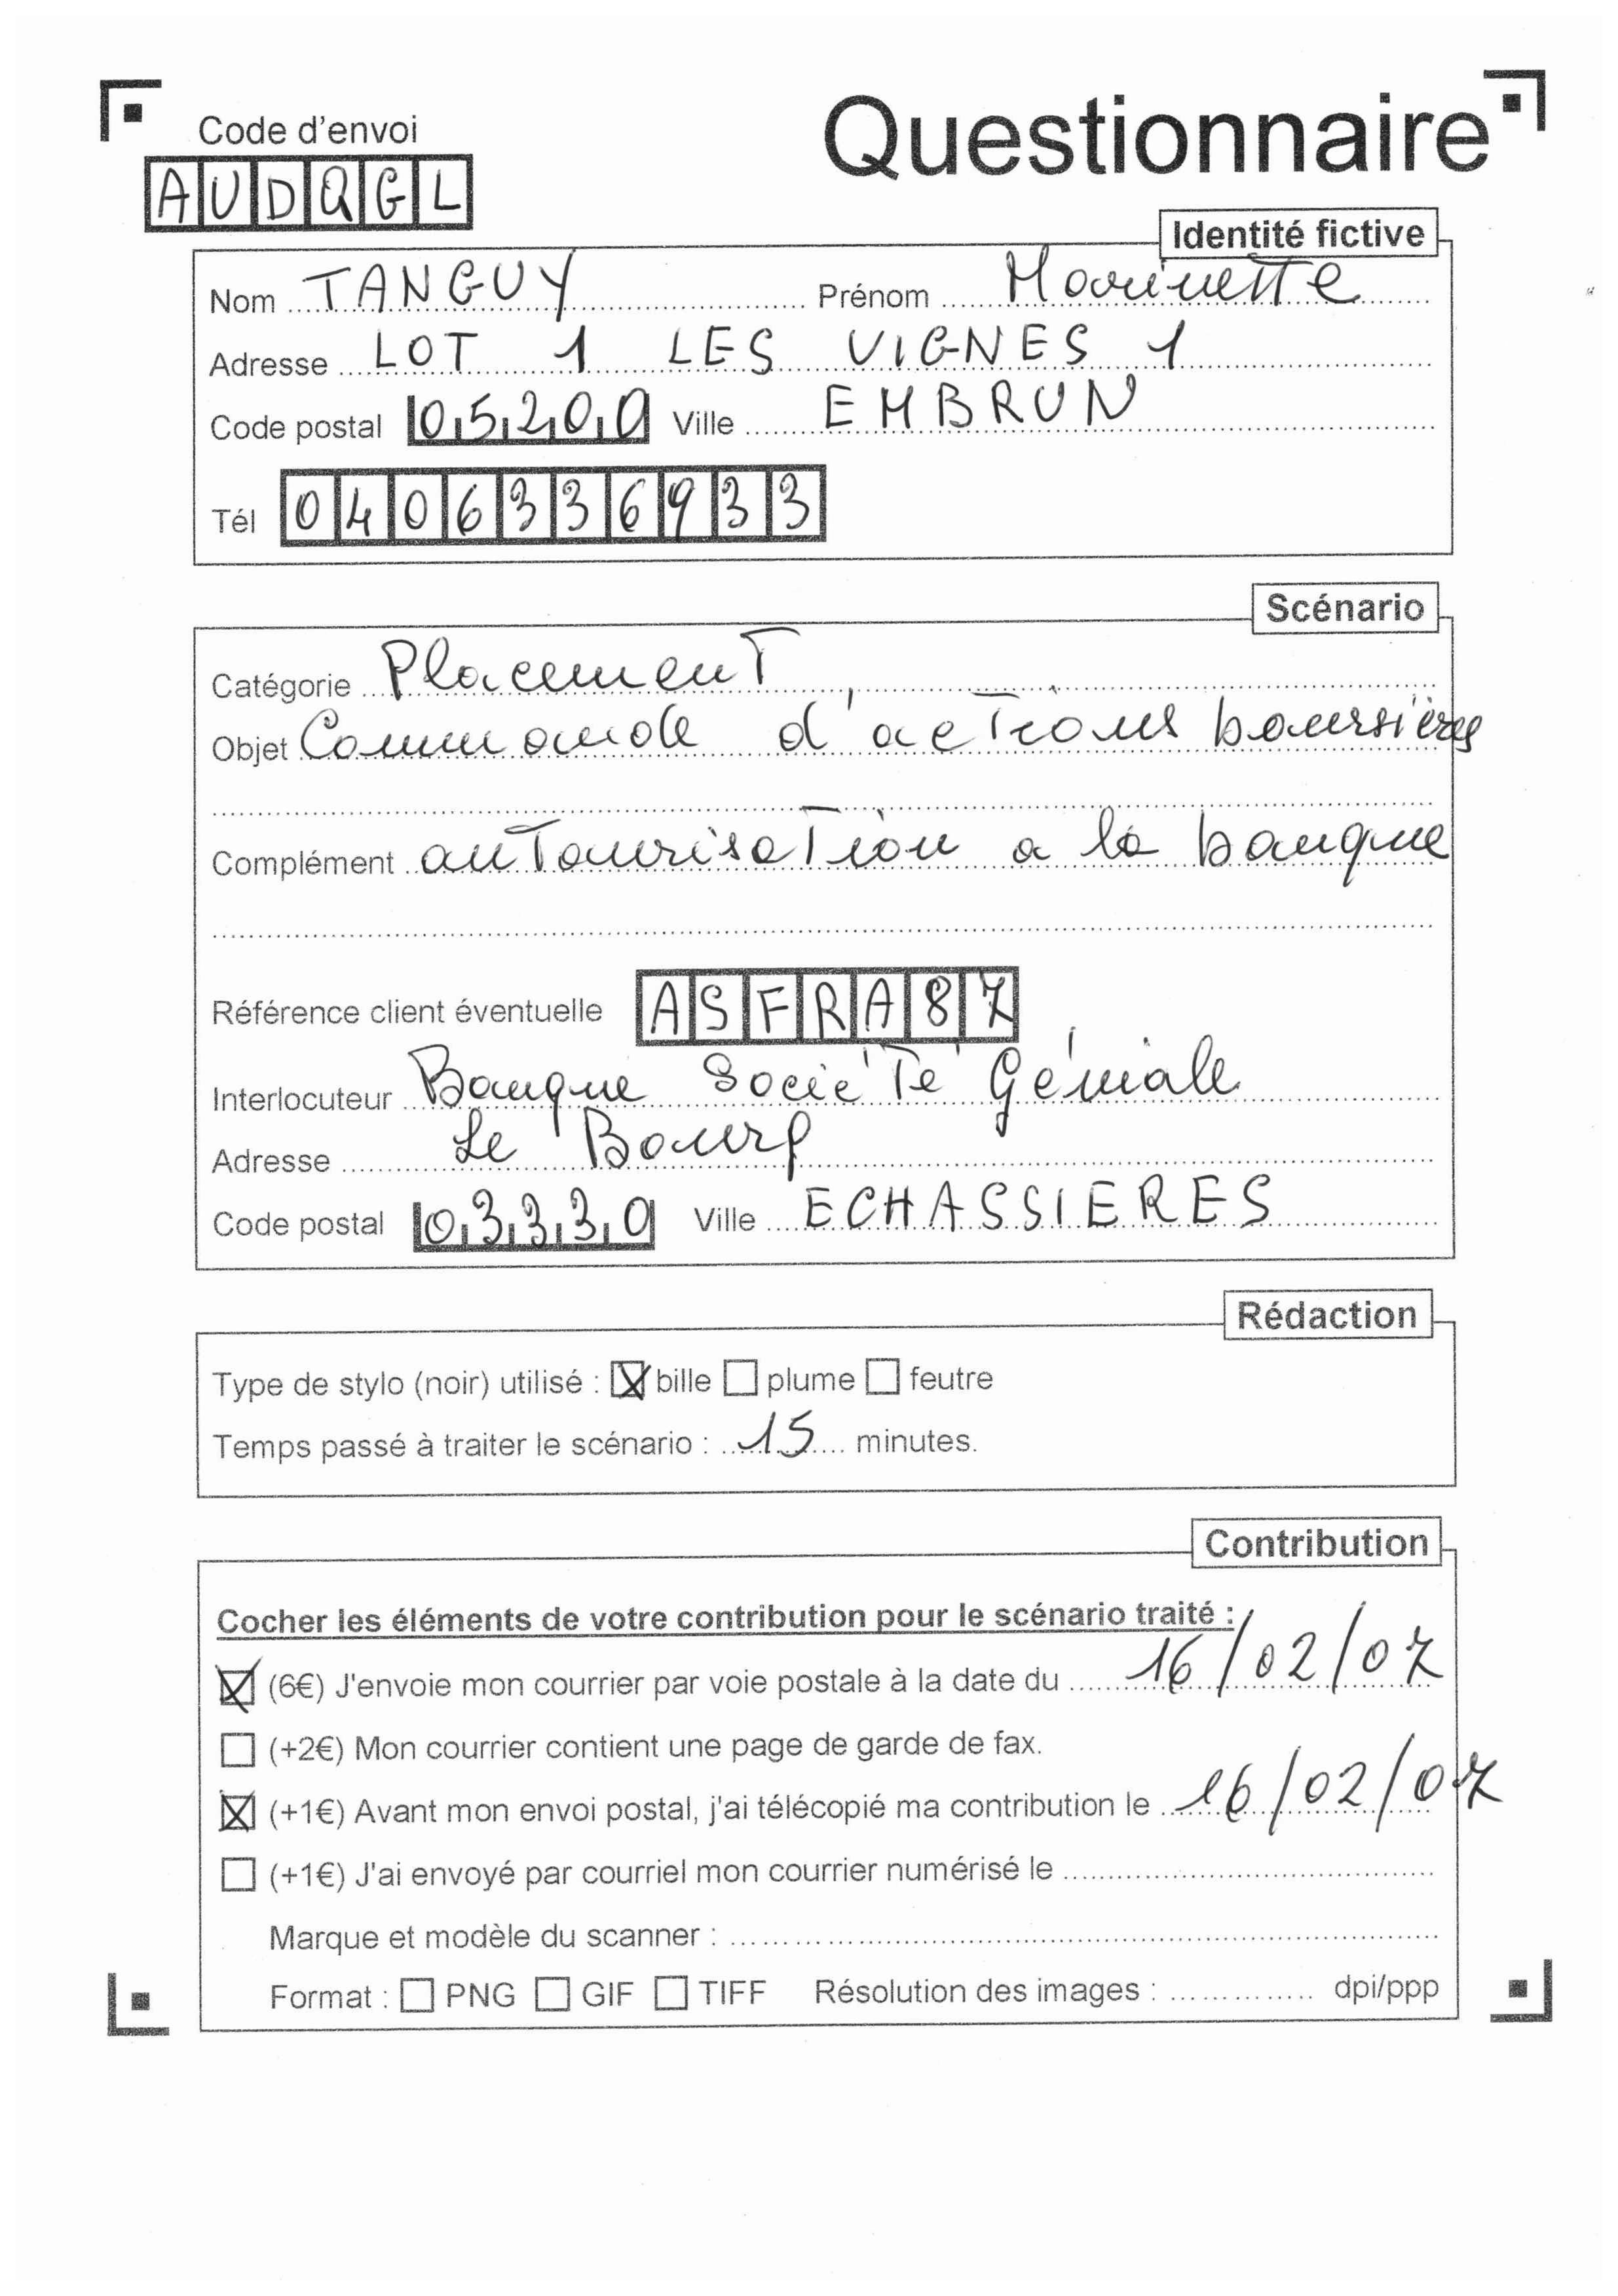 Code d'envoi
AUDQGL
Questionnaire
Identité fictive
Nom TANGUY Prénom Marinette
Adresse LOT 1 LES VIGNES 1
Code postal 05200 Ville EMBRUN
Tél 0406336933
Scénario
Catégorie Placement
Objet Commande d'actions boursières
Complément autourisation a la banque
Référence client éventuelle ASFRA87
Interlocuteur Banque Société Géniale
Adresse Le Bourg
Code postal 03330 Ville ECHASSIERES
Rédaction
Type de stylo (noir) utilisé : bille plume feutre
Temps passé à traiter le scénario : 15 minutes.
Contribution
Cocher les éléments de votre contribution pour le scénario traité :
(6€) J'envoie mon courrier par voie postale à la date du 16/02/07
(+2€) Mon courrier contient une page de garde de fax.
(+1€) Avant mon envoi postal, j'ai télécopié ma contribution le 16/02/07
(+1€) J'ai envoyé par courriel mon courrier numérisé le
Marque et modèle du scanner :
Format : PNG GIF TIFF Résolution des images : dpi/ppp